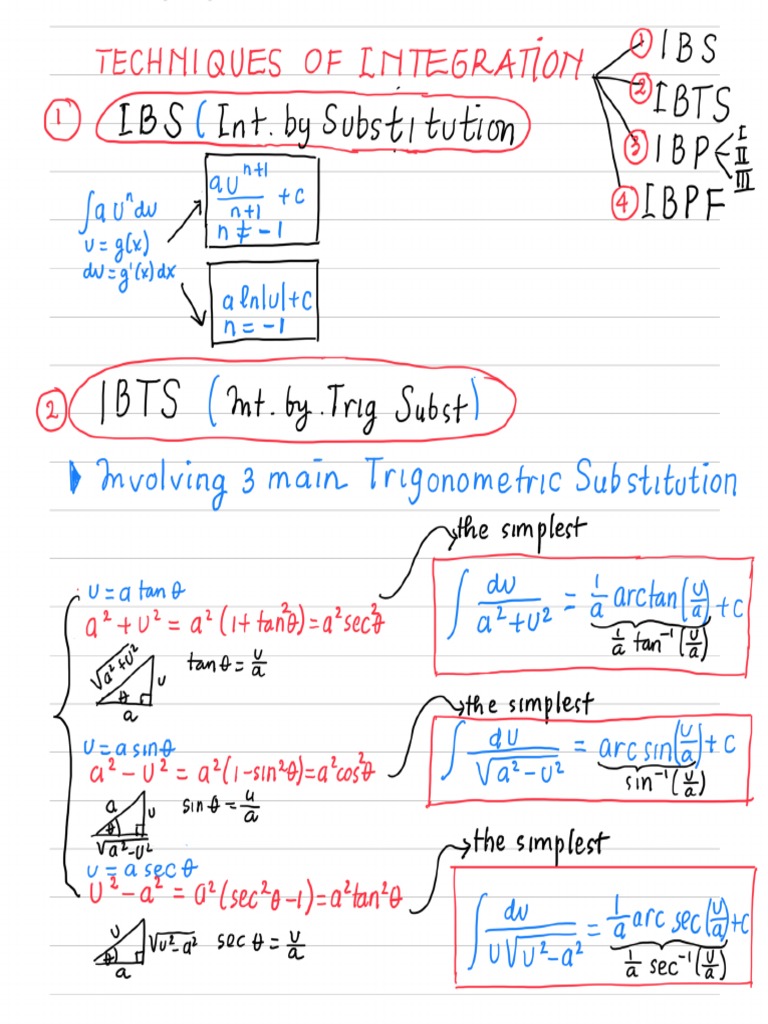 TECHNIQUES OF INTEGRATION
① IBS
② IBTS
③ IBP < I II III
④ IBPF
① IBS (Int. by Substitution
∫ a uⁿ du
u = g(x)
du = g'(x) dx
au^(n+1)/(n+1) + c
n ≠ -1
a ln|u| + c
n = -1
② IBTS (Int. by. Trig Subst)
Involving 3 main Trigonometric Substitution
the simplest
u = a tan θ
a² + u² = a² (1 + tan²θ) = a² sec²θ
√a²+u²
u
θ
a
tan θ = u/a
∫ du/(a² + u²) = 1/a arctan(u/a) + c
1/a tan⁻¹(u/a)
the simplest
u = a sin θ
a² - u² = a² (1 - sin²θ) = a² cos²θ
a
u
θ
√a²-u²
sin θ = u/a
∫ du/√(a² - u²) = arc sin(u/a) + c
sin⁻¹(u/a)
the simplest
u = a sec θ
u² - a² = a² (sec²θ - 1) = a² tan²θ
u
√u²-a²
θ
a
sec θ = u/a
∫ du/(u√(u² - a²)) = 1/a arc sec(u/a) + c
1/a sec⁻¹(u/a)